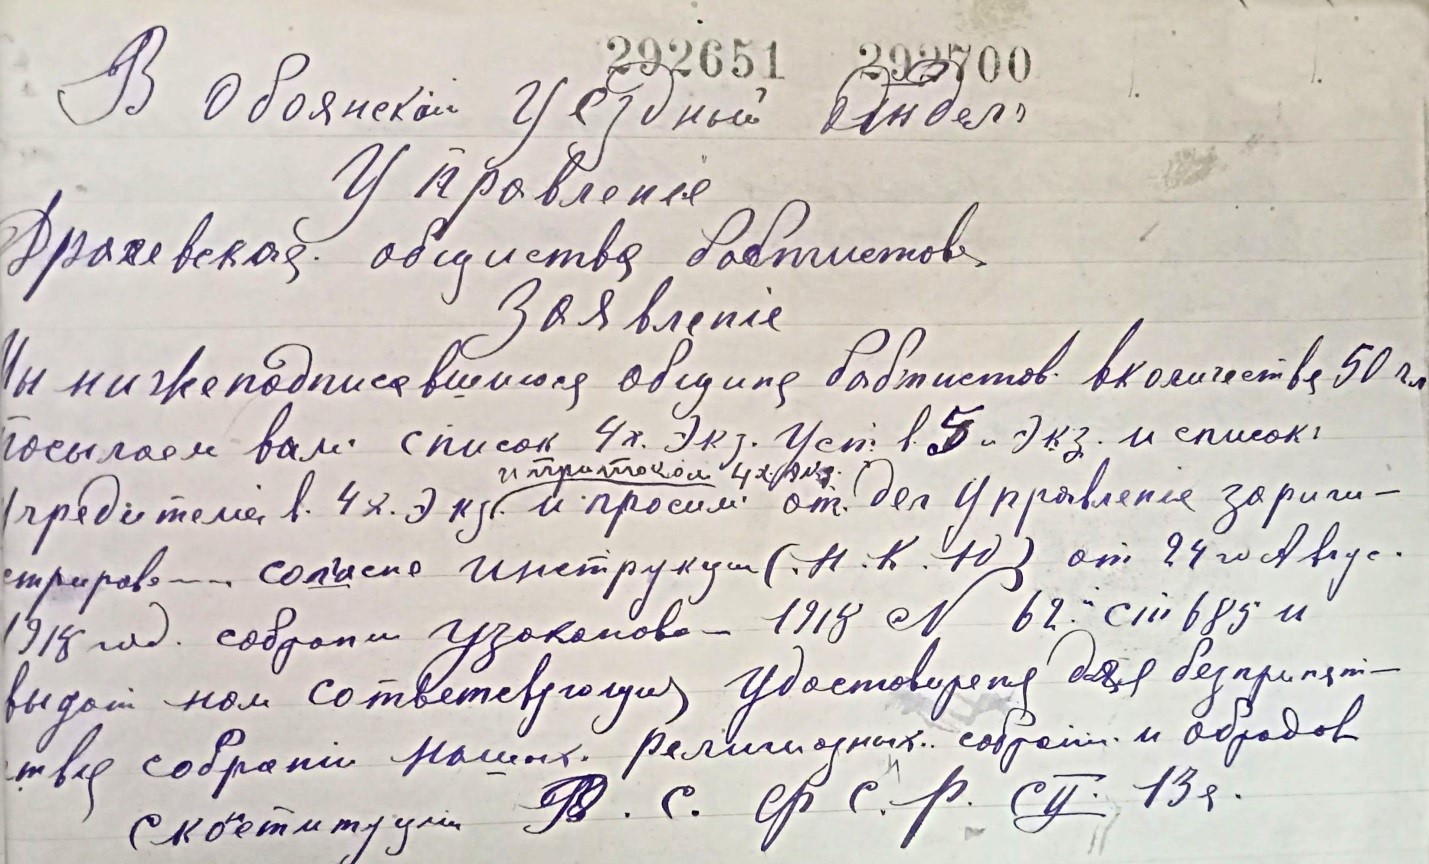 292651 292700
В Обоянскай Уездный Отдел
Управление
Драчевская общиства баптистов
Заявление
Мы нижеподписавшиися община баптистов в количества 50 чл
посылаем вам список 4х. Экз. Уст. в 5и Экз. и список
и притокол 4х. экз.
учредителей в 4х. Экз. и просим от. дел Управление зариги-
стрирова согласно инструкции (Н.К.Ю) от 24го Авгус.
1918 год. собрании узаконова 1918 N 62. ст 685 и
выдат нам сответсвующия удостовирения для безпрпят-
ства собрании наших. Религиозных. собраний. и обрядов
Р. С. Ф С. Р. СТ. 13я.